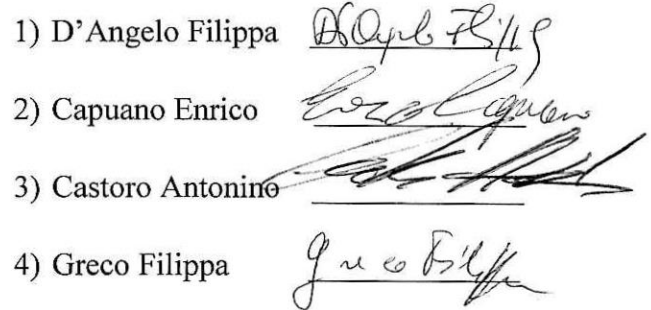 1) D’Angelo Filippa D'Angelo Filippa
2) Capuano Enrico Capuano
3) Castoro Antonino
4) Greco Filippa Greco Filippa